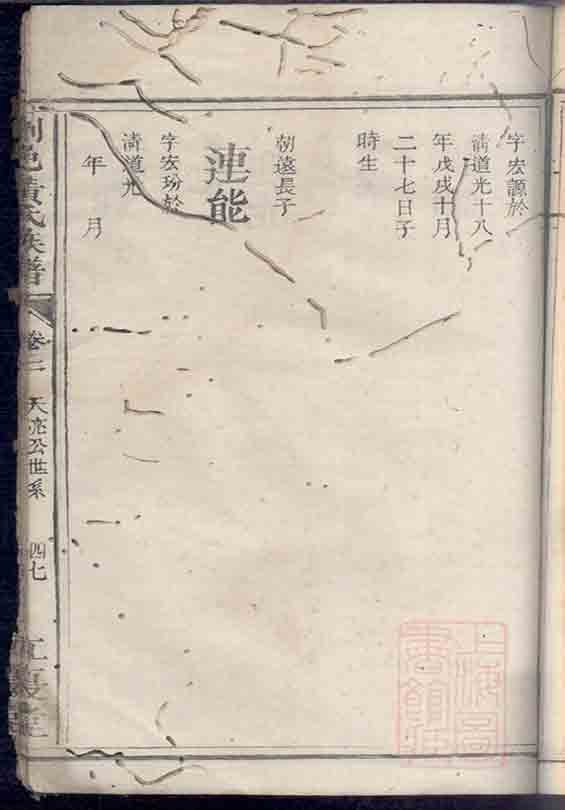 字宏源於
清道光十八
年戊戌十月
二十七日子
時生
朝遠長子
連能
字宏玢於
清道光
年 月
邑黃氏族譜
卷二
天亮公世系
四七
上海圖書館藏